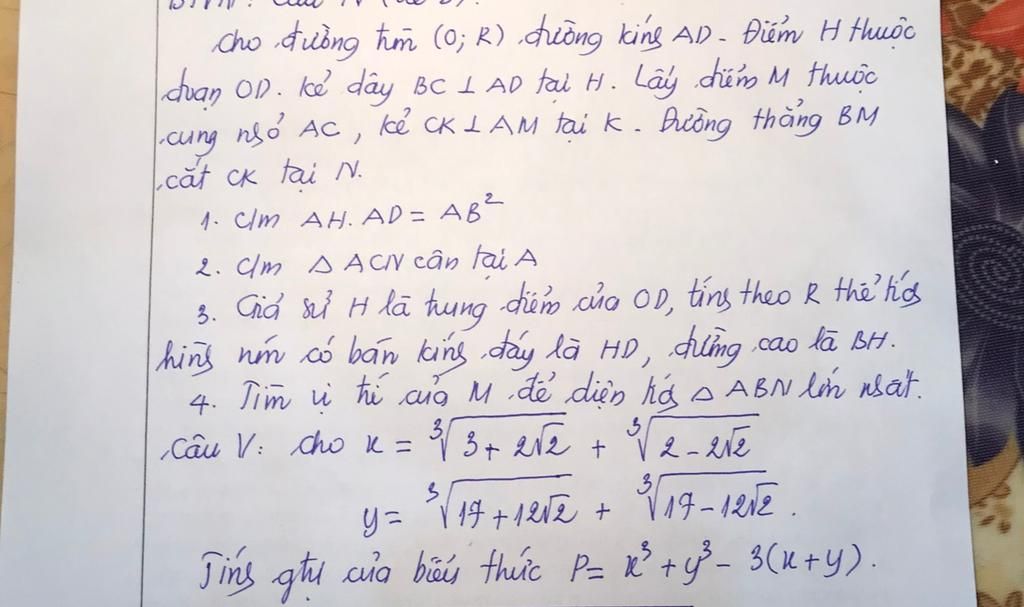 BTVN: Câu IV
Cho đường tròn (O; R) đường kính AD. Điểm H thuộc
đoạn OD. Kẻ dây BC ⊥ AD tại H. Lấy điểm M thuộc
cung nhỏ AC, kẻ CK ⊥ AM tại K. Đường thẳng BM
cắt CK tại N.
1. C/m AH. AD = AB²
2. C/m △ ACN cân tại A
3. Giả sử H là trung điểm của OD, tính theo R thể tích
hình nón có bán kính đáy là HD, đường cao là BH.
4. Tìm vị trí của M để diện tích △ ABN lớn nhất.
Câu V: Cho x = ∛(3 + 2√2) + ∛(2 - 2√2)
y = ∛(17 + 12√2) + ∛(17 - 12√2).
Tính gtrị của biểu thức P = x³ + y³ - 3(x + y).